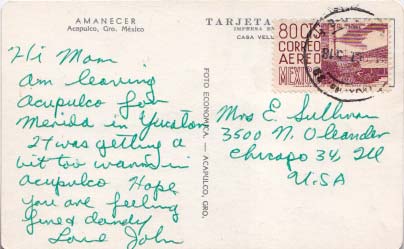 AMANECER
Acapulco, Gro. México
TARJETA
IMPRESA EN
CASA VELL
80C
CORREO
AEREO
MEXICO
Hi Mom
Am leaving
Acupulco for
Merida in Yucatan
It was getting a
bit too warm in
Acupulco Hope
you are feeling
fine & dandy
Love John
FOTO ECONOMICA. — ACAPULCO, GRO.
Mrs E. Sullivan
3500 N. Oleander
Chicago 34, Ill
U.S.A